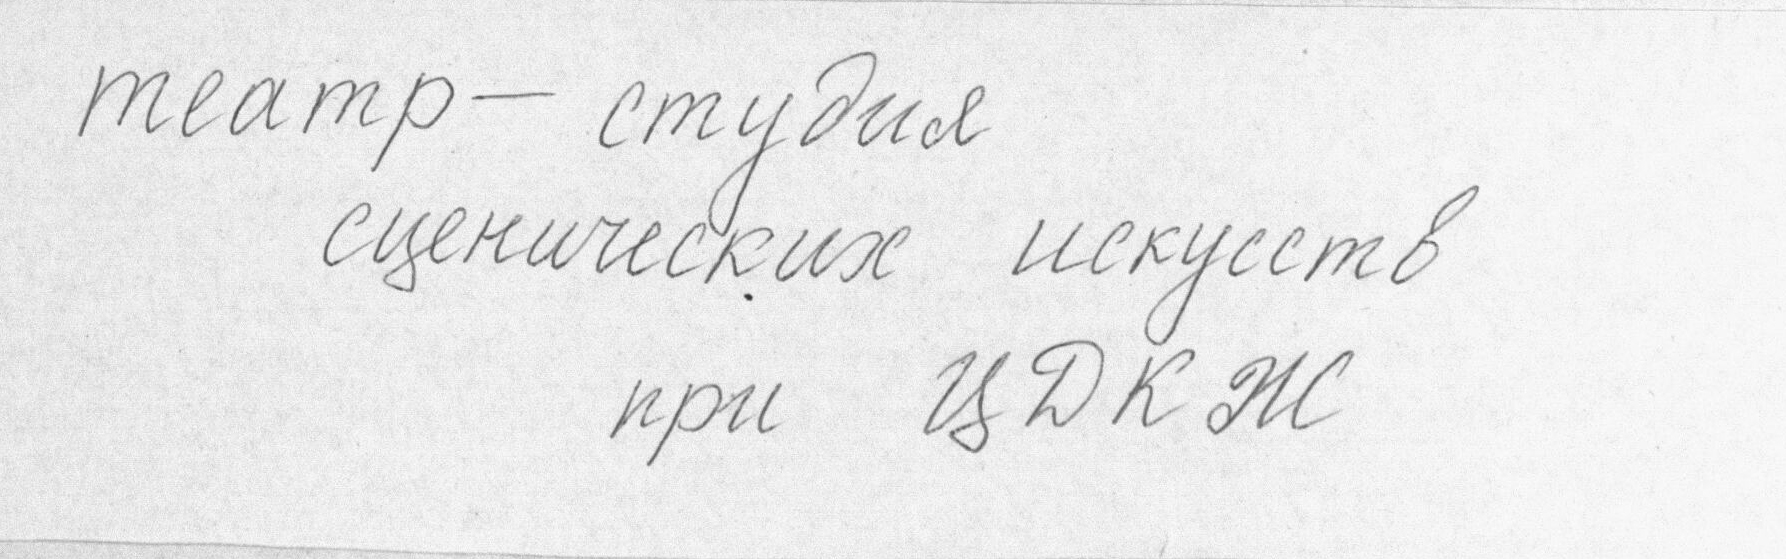 театр — студия
сценических искусств
при ЦДКЖ